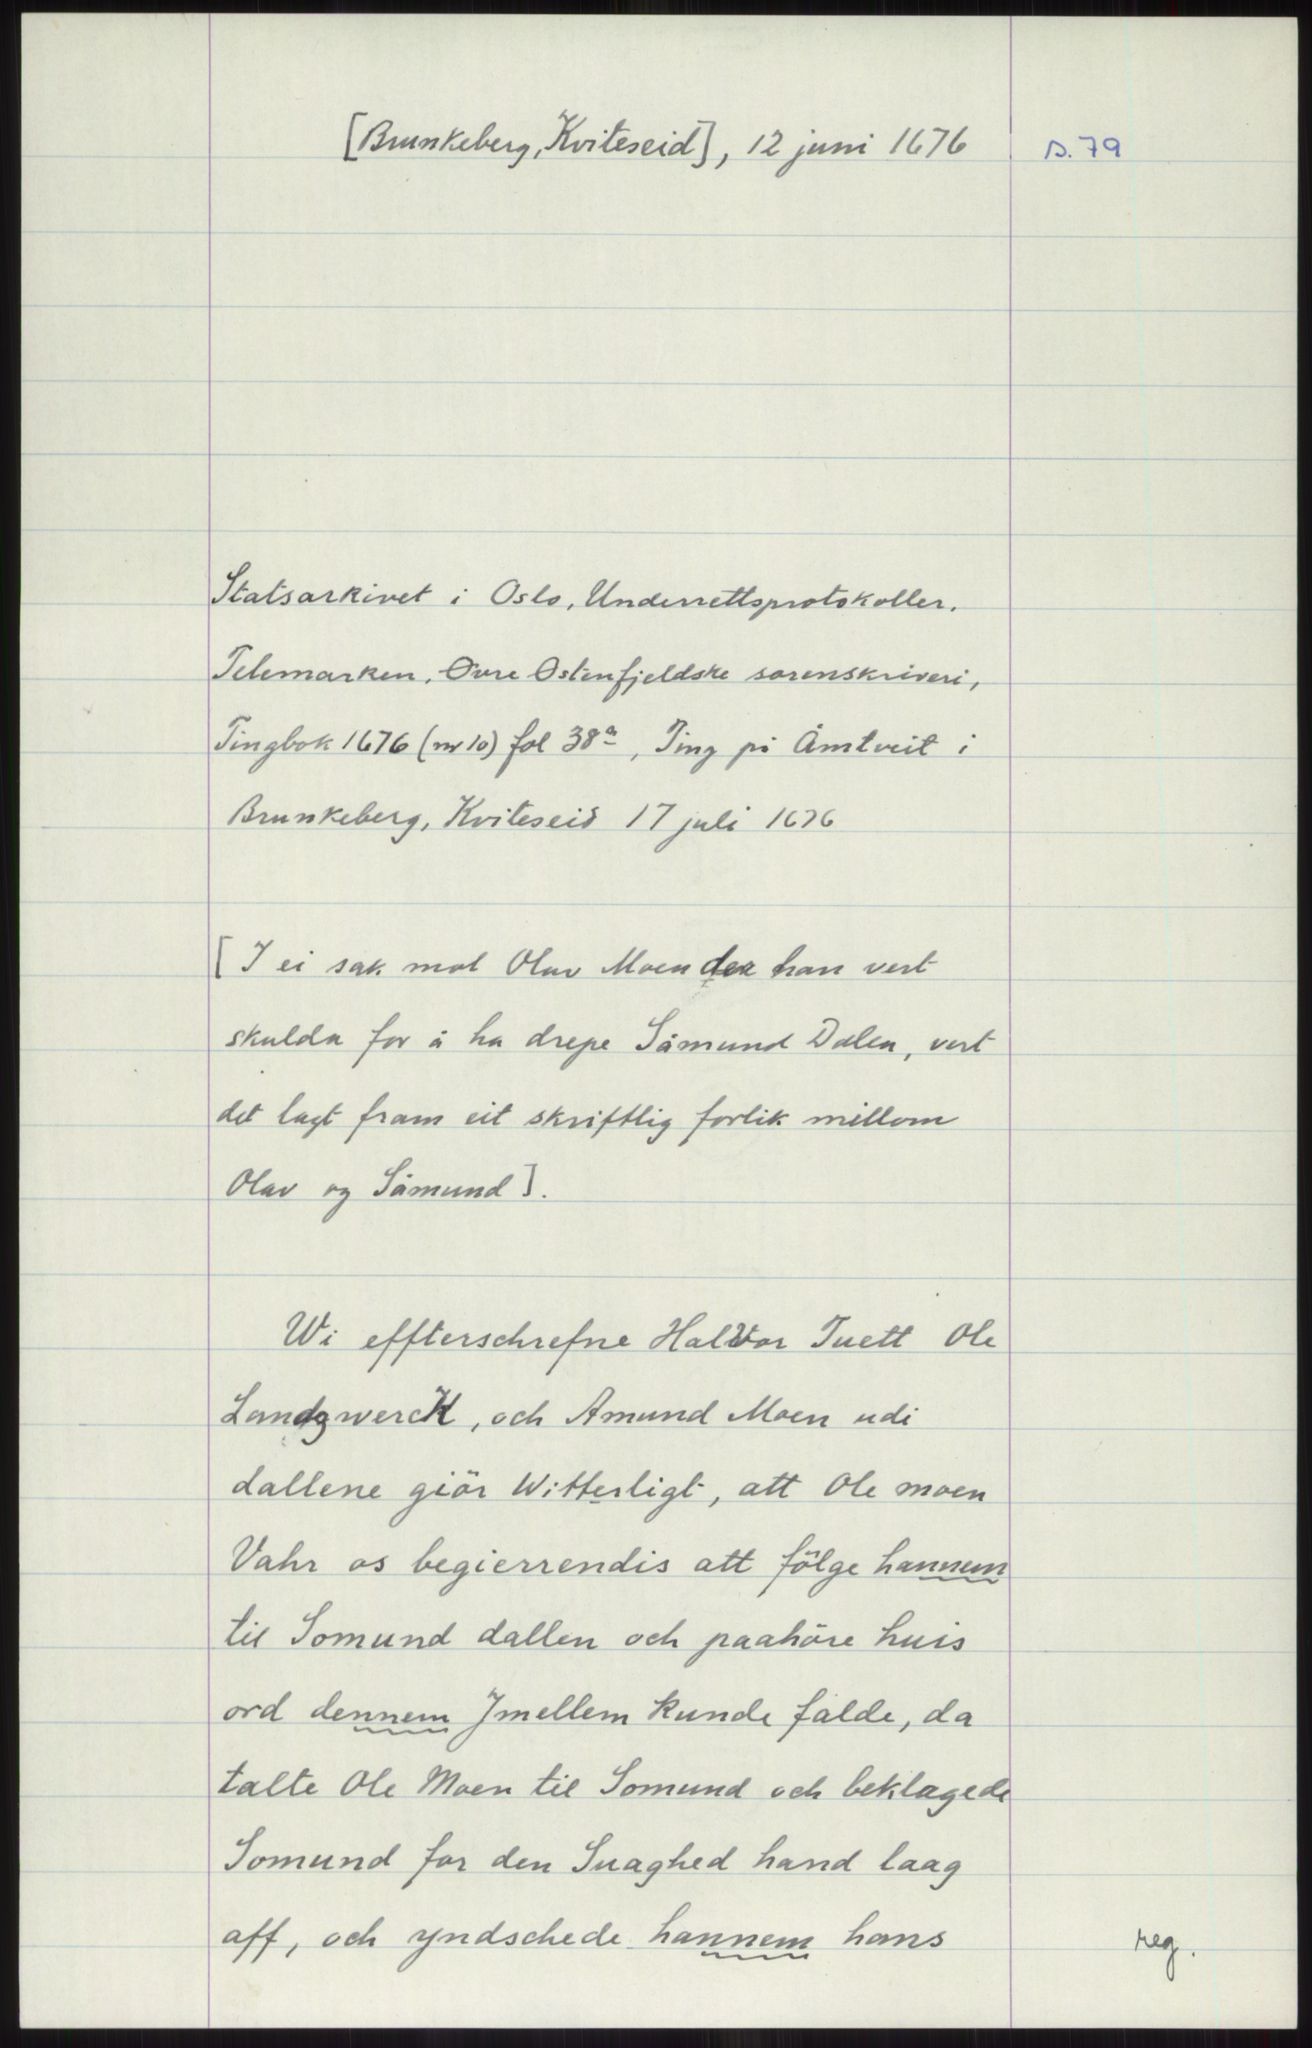 [Brunkeberg, Kviteseid], 12 juni 1676 s. 79
Statsarkivet i Oslo, Underrettsprotokoller.
Telemarken. Øvre Østenfjeldske sorenskriveri,
Tingbok 1676 (nr 10) fol 38a, Ting på Åmtveit i
Brunkeberg, Kviteseid 17 juli 1676
[I ei sak mot Olav Moen der han vert
skulda for å ha drepe Såmund Dalen, vert
det lagt fram eit skriftlig forlik millom
Olav og Såmund].
Wi effterschrefne Halvor Tuett Ole
Landzwerck, och Amund Moen udi
dallene giör Witterligt, att Ole moen
Vahr os begierrendis att fölge hannem
til Somund dallen och paahöre huis
ord dennem Jmellem kunde falde, da
talte Ole Moen til Somund och beklagede
Somund for den Suaghed hand laag
aff, och yndschede hannem hans
reg.